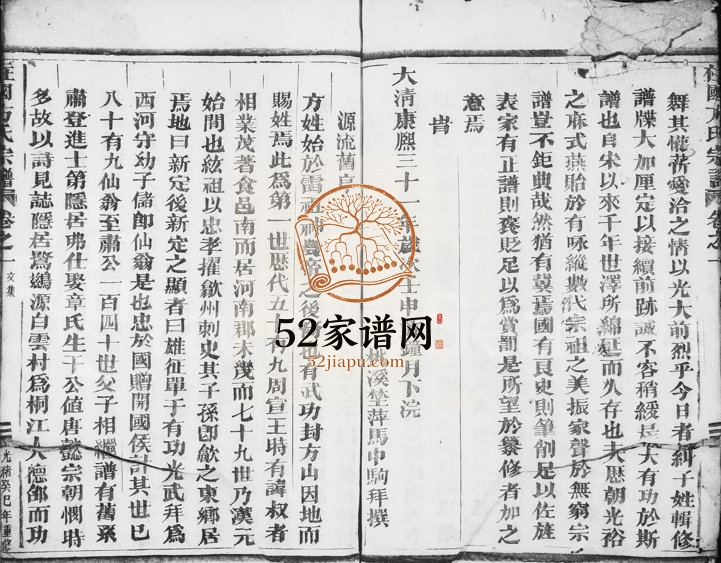 舞其懽忻愛洽之情以光大前烈乎今日者糾子姓輯修
譜牒大加厘定以接續前跡誠不容稍緩是大有功於斯
譜也自宋以來千年世澤所綿延而久存也大歷朝光裕
之庥式燕貽於有咏縱數代宗祖之美振家聲於無窮宗
譜豈不鉅典哉然猶有冀焉國有良史則筆削足以佐旌
表家有正譜則褒貶足以爲賞罰是所望於纂修者加之
意焉
峕
大清康熙三十一年歲次壬申鐘月下浣
桃溪埜萍馬中駒拜撰
源流舊
方姓始於雷祖神農之後也有武功封方山因地而
賜姓焉此爲第一世歷代五十有九周宣王時有諱叔者
相業茂著食邑南而居河南郡未幾而七十九世乃漢元
始間也紘祖以忠孝擢歙州刺史其子孫卽歙之東鄉居
焉地曰新定後新定之顯者曰雄征單于有功光武拜爲
西河守幼子儲卽仙翁是也忠於國贈開國侯計其世已
八十有九仙翁至肅公一百四十世父子相繼譜有舊泵
肅登進士第隱居弗仕娶章氏生干公値唐懿宗朝憫時
多故以詩見誌隱居鸞鸂源白雲村爲桐江人德邵而功
柱國方氏宗譜
卷之一
文集
光緒癸巳年重修
52家谱网
52jiapu.com